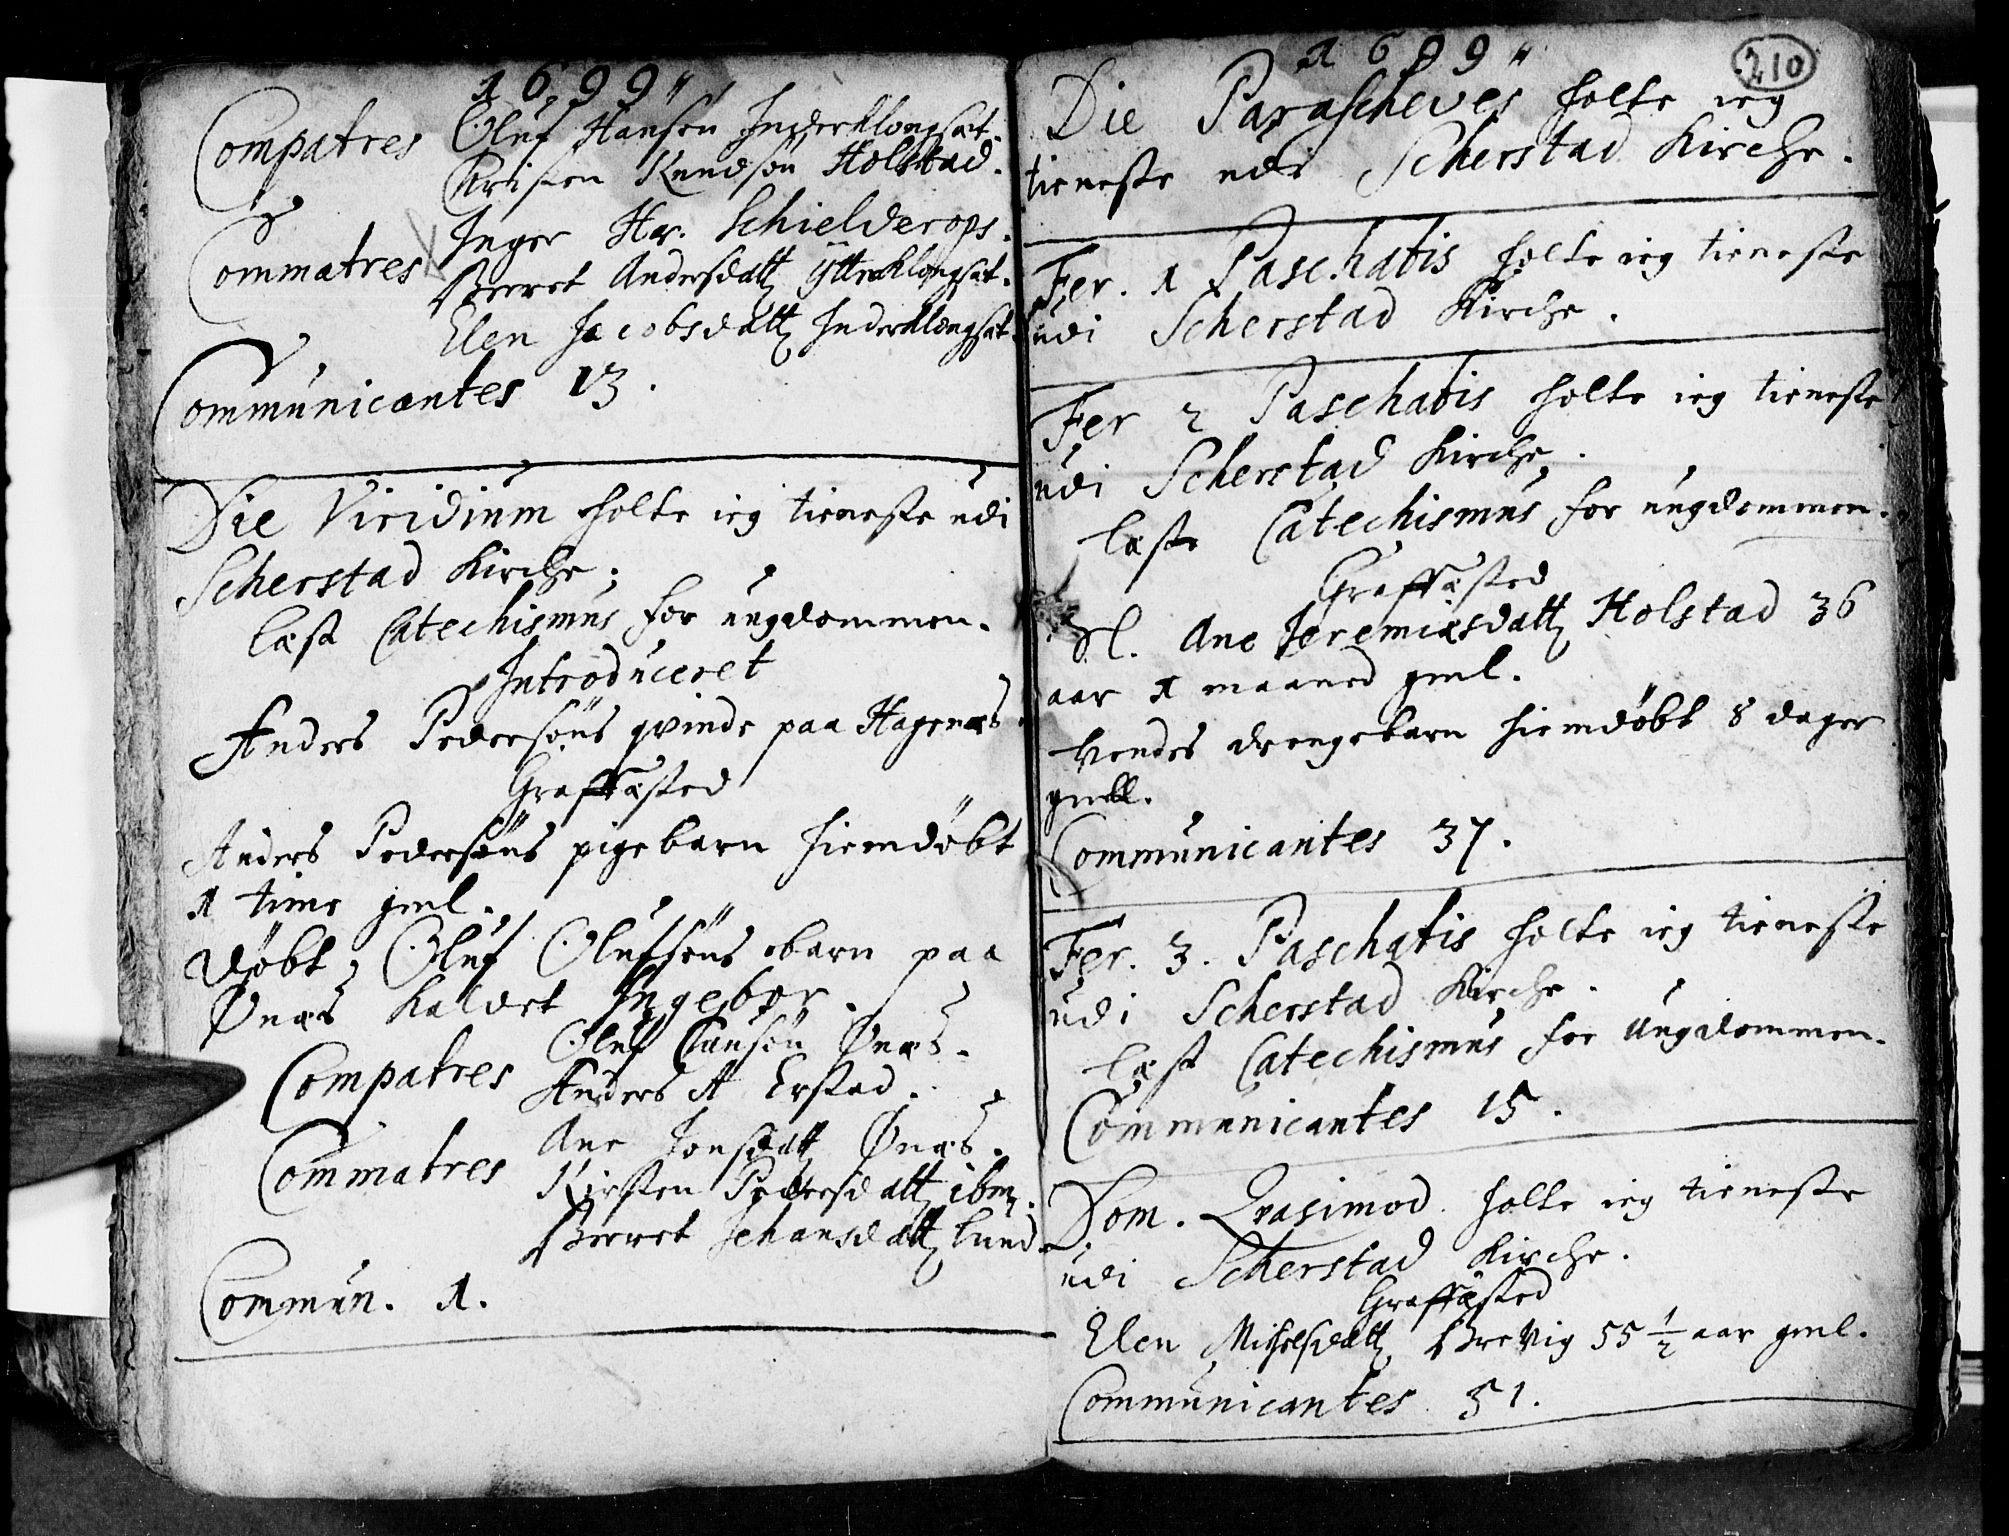 1699
Compatres Oluf Hansøn Inderklongset.
Kristen Knudsøn Holstad.
Commatres Inger Hr. Schielderops.
Berret Andersdatt Ytterklongset.
Elen Jacobsdatt Inderklongset.
Communicantes 13.
Die Viridium holte ieg tieneste udi
Scherstad Kirche;
læst Catechismus for ungdommen.
Introduceret
Anders Pedersøns qvinde paa Hagenæs
Graffæsted
Anders Pedersøns pigebarn hiemdøbt
1 time gml.
Døbt, Oluf Olufsøns barn paa
Ønæs kaldet Ingebor.
Compatres Oluf Clausøn Ønæs.
Anders A Erstad.
Commatres Ane Jonsdatt Ønæs.
Kirsten Pedersdatt ibm.
Berret Johansdatt Lund.
Commun. 1.
1699
210
Die Parascheves holte ieg
tieneste udi Scherstad Kirche.
Fer. 1 Paschatis holte ieg tieneste
udi Scherstad Kirche.
Fer 2 Paschatis holte ieg tieneste
udi Scherstad Kirche.
læste Catechismus for ungdommen.
Graffæsted
Sl. Ane Jeremiæsdatt Holstad 36
aar 1 maaned gml.
drengebarn hiemdøbt 8 dager
gmll.
Communicantes 37.
Fer. 3. Paschatis holte ieg tieneste
udi Scherstad Kirche.
læst Catechismus for Ungdommen.
Communicantes 15.
Dom. Qvasimod. holte ieg tieneste
udi Scherstad Kirche.
Graffæsted
Elen Michelsdatt Brevig 55 1/2 aar gml.
Communicantes 51.